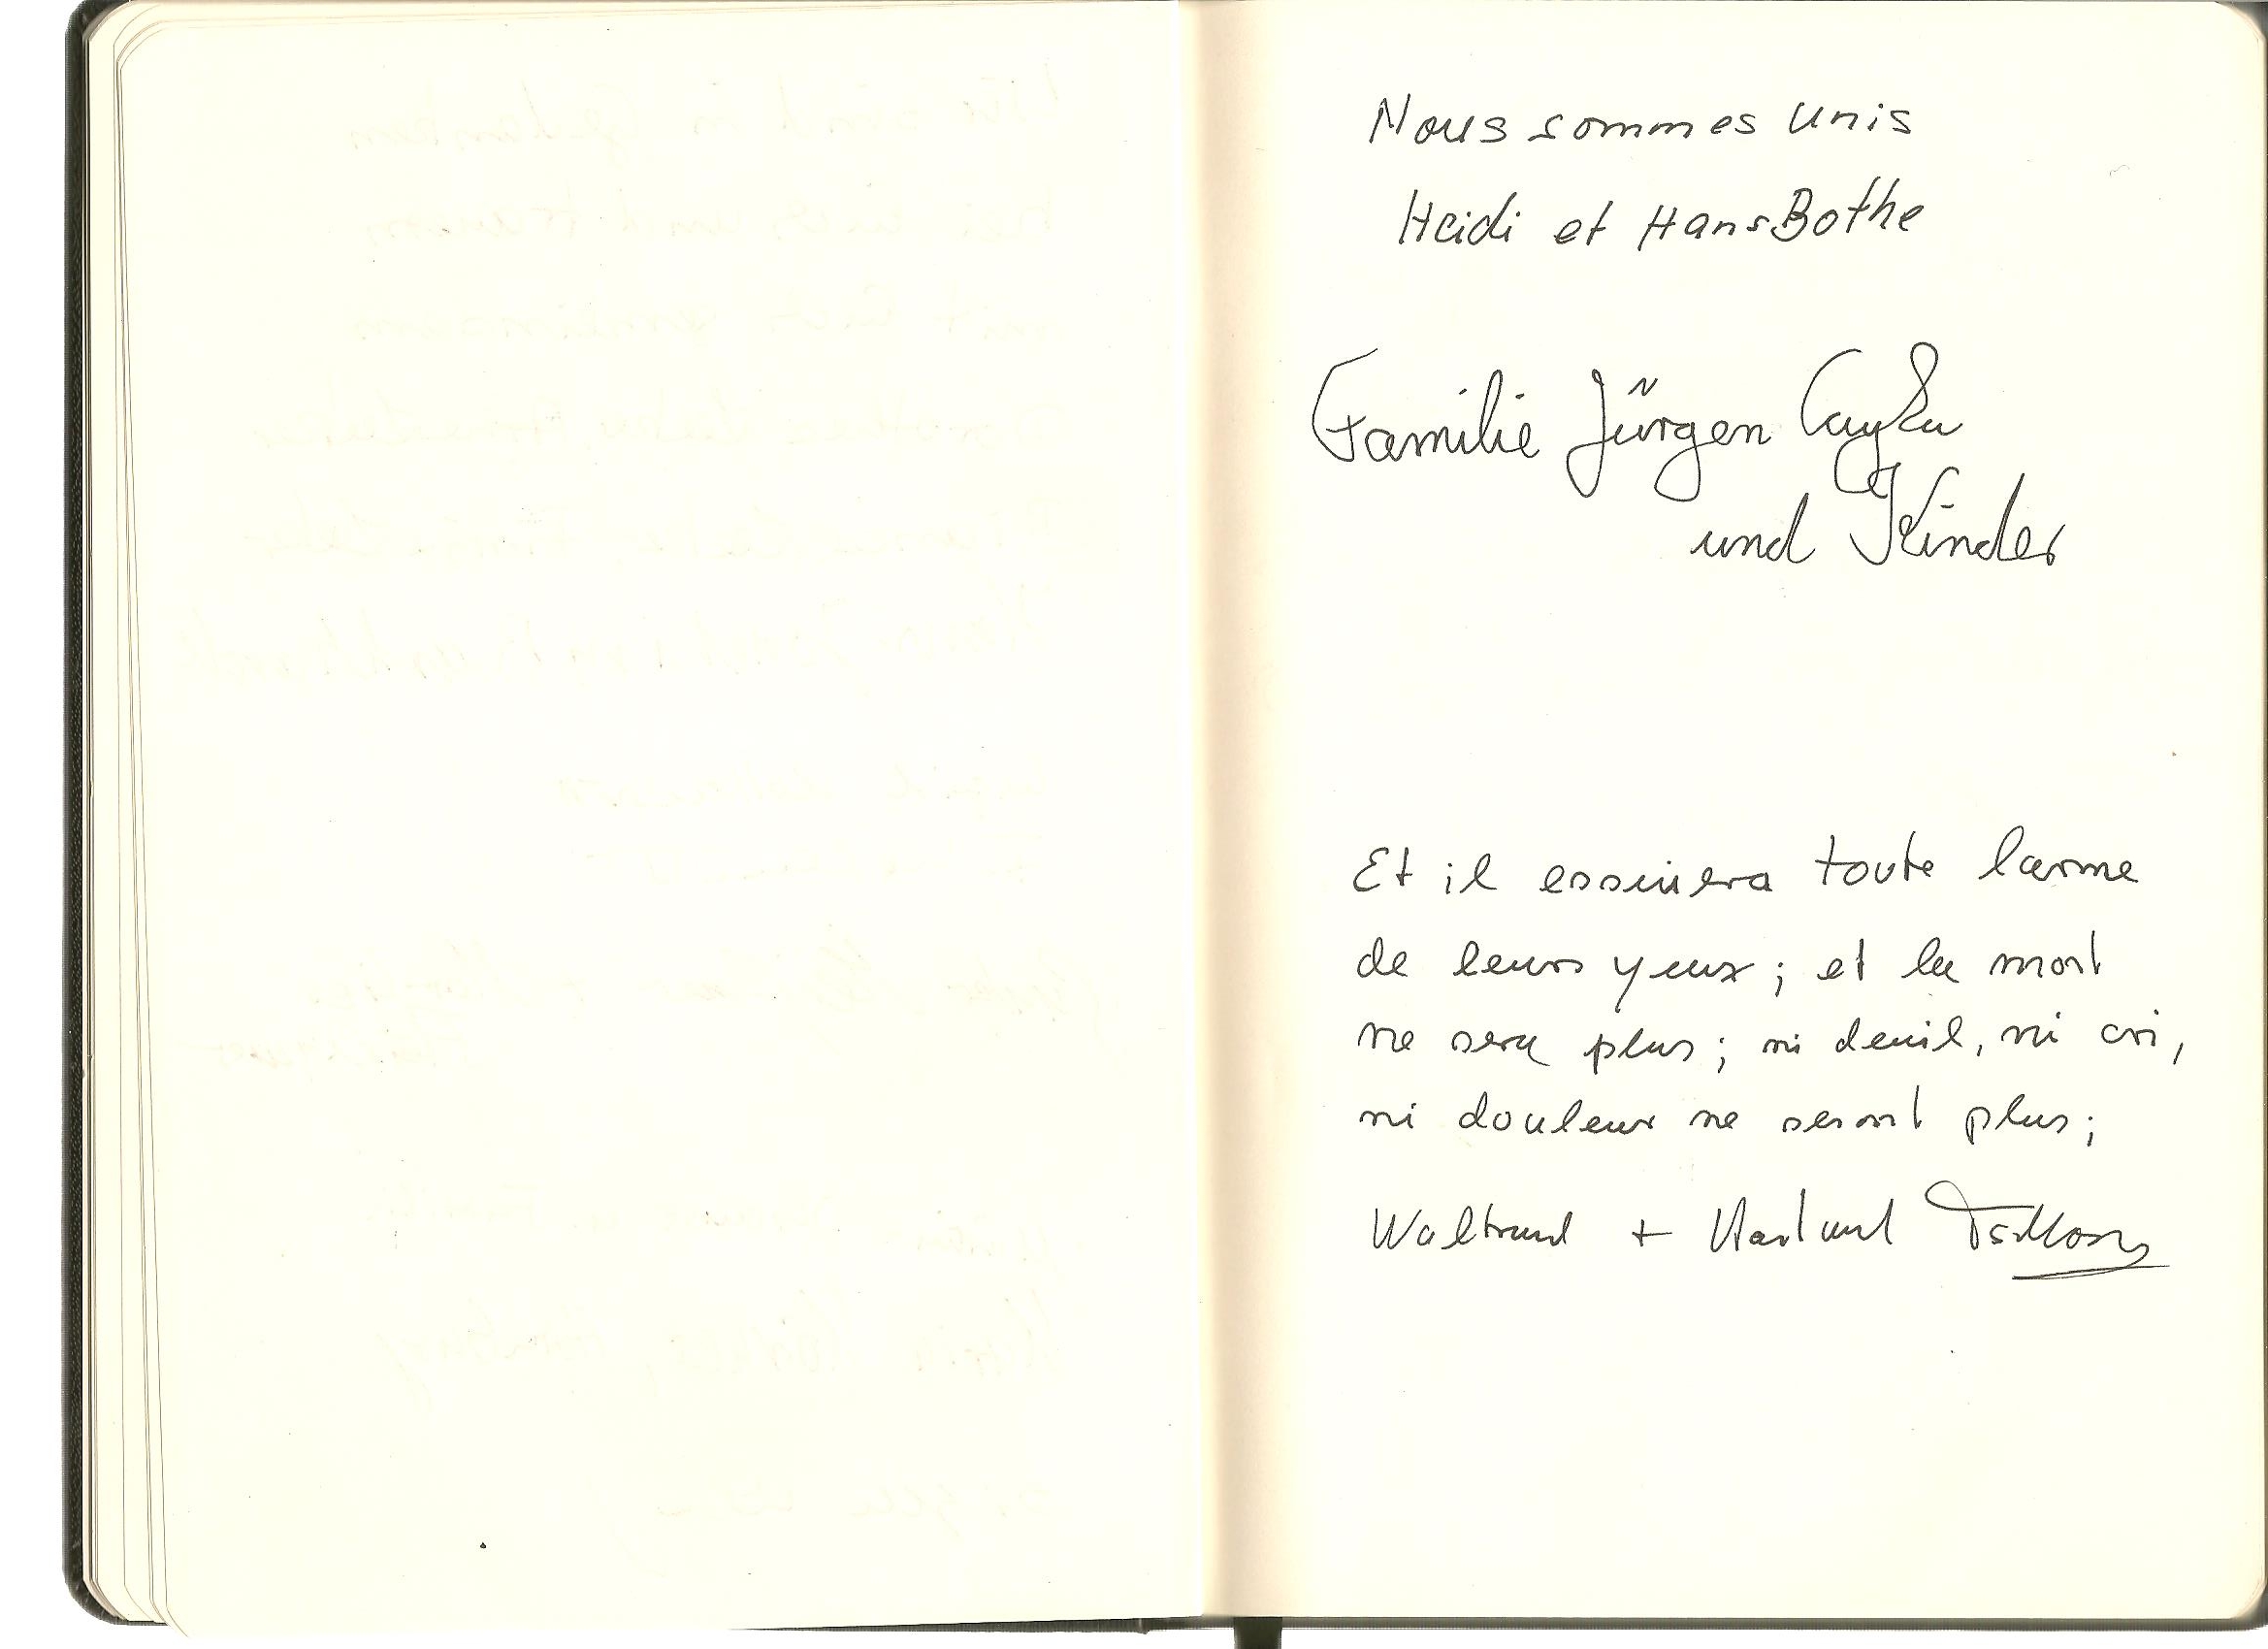 Nous sommes unis
Heidi et Hans Bothe
Familie Jürgen
und Kinder
Et il essuiera toute larme
de leurs yeux ; et la mort
ne sera plus ; ni deuil, ni cri,
ni douleur ne seront plus ;
Waltraud + Hartmut